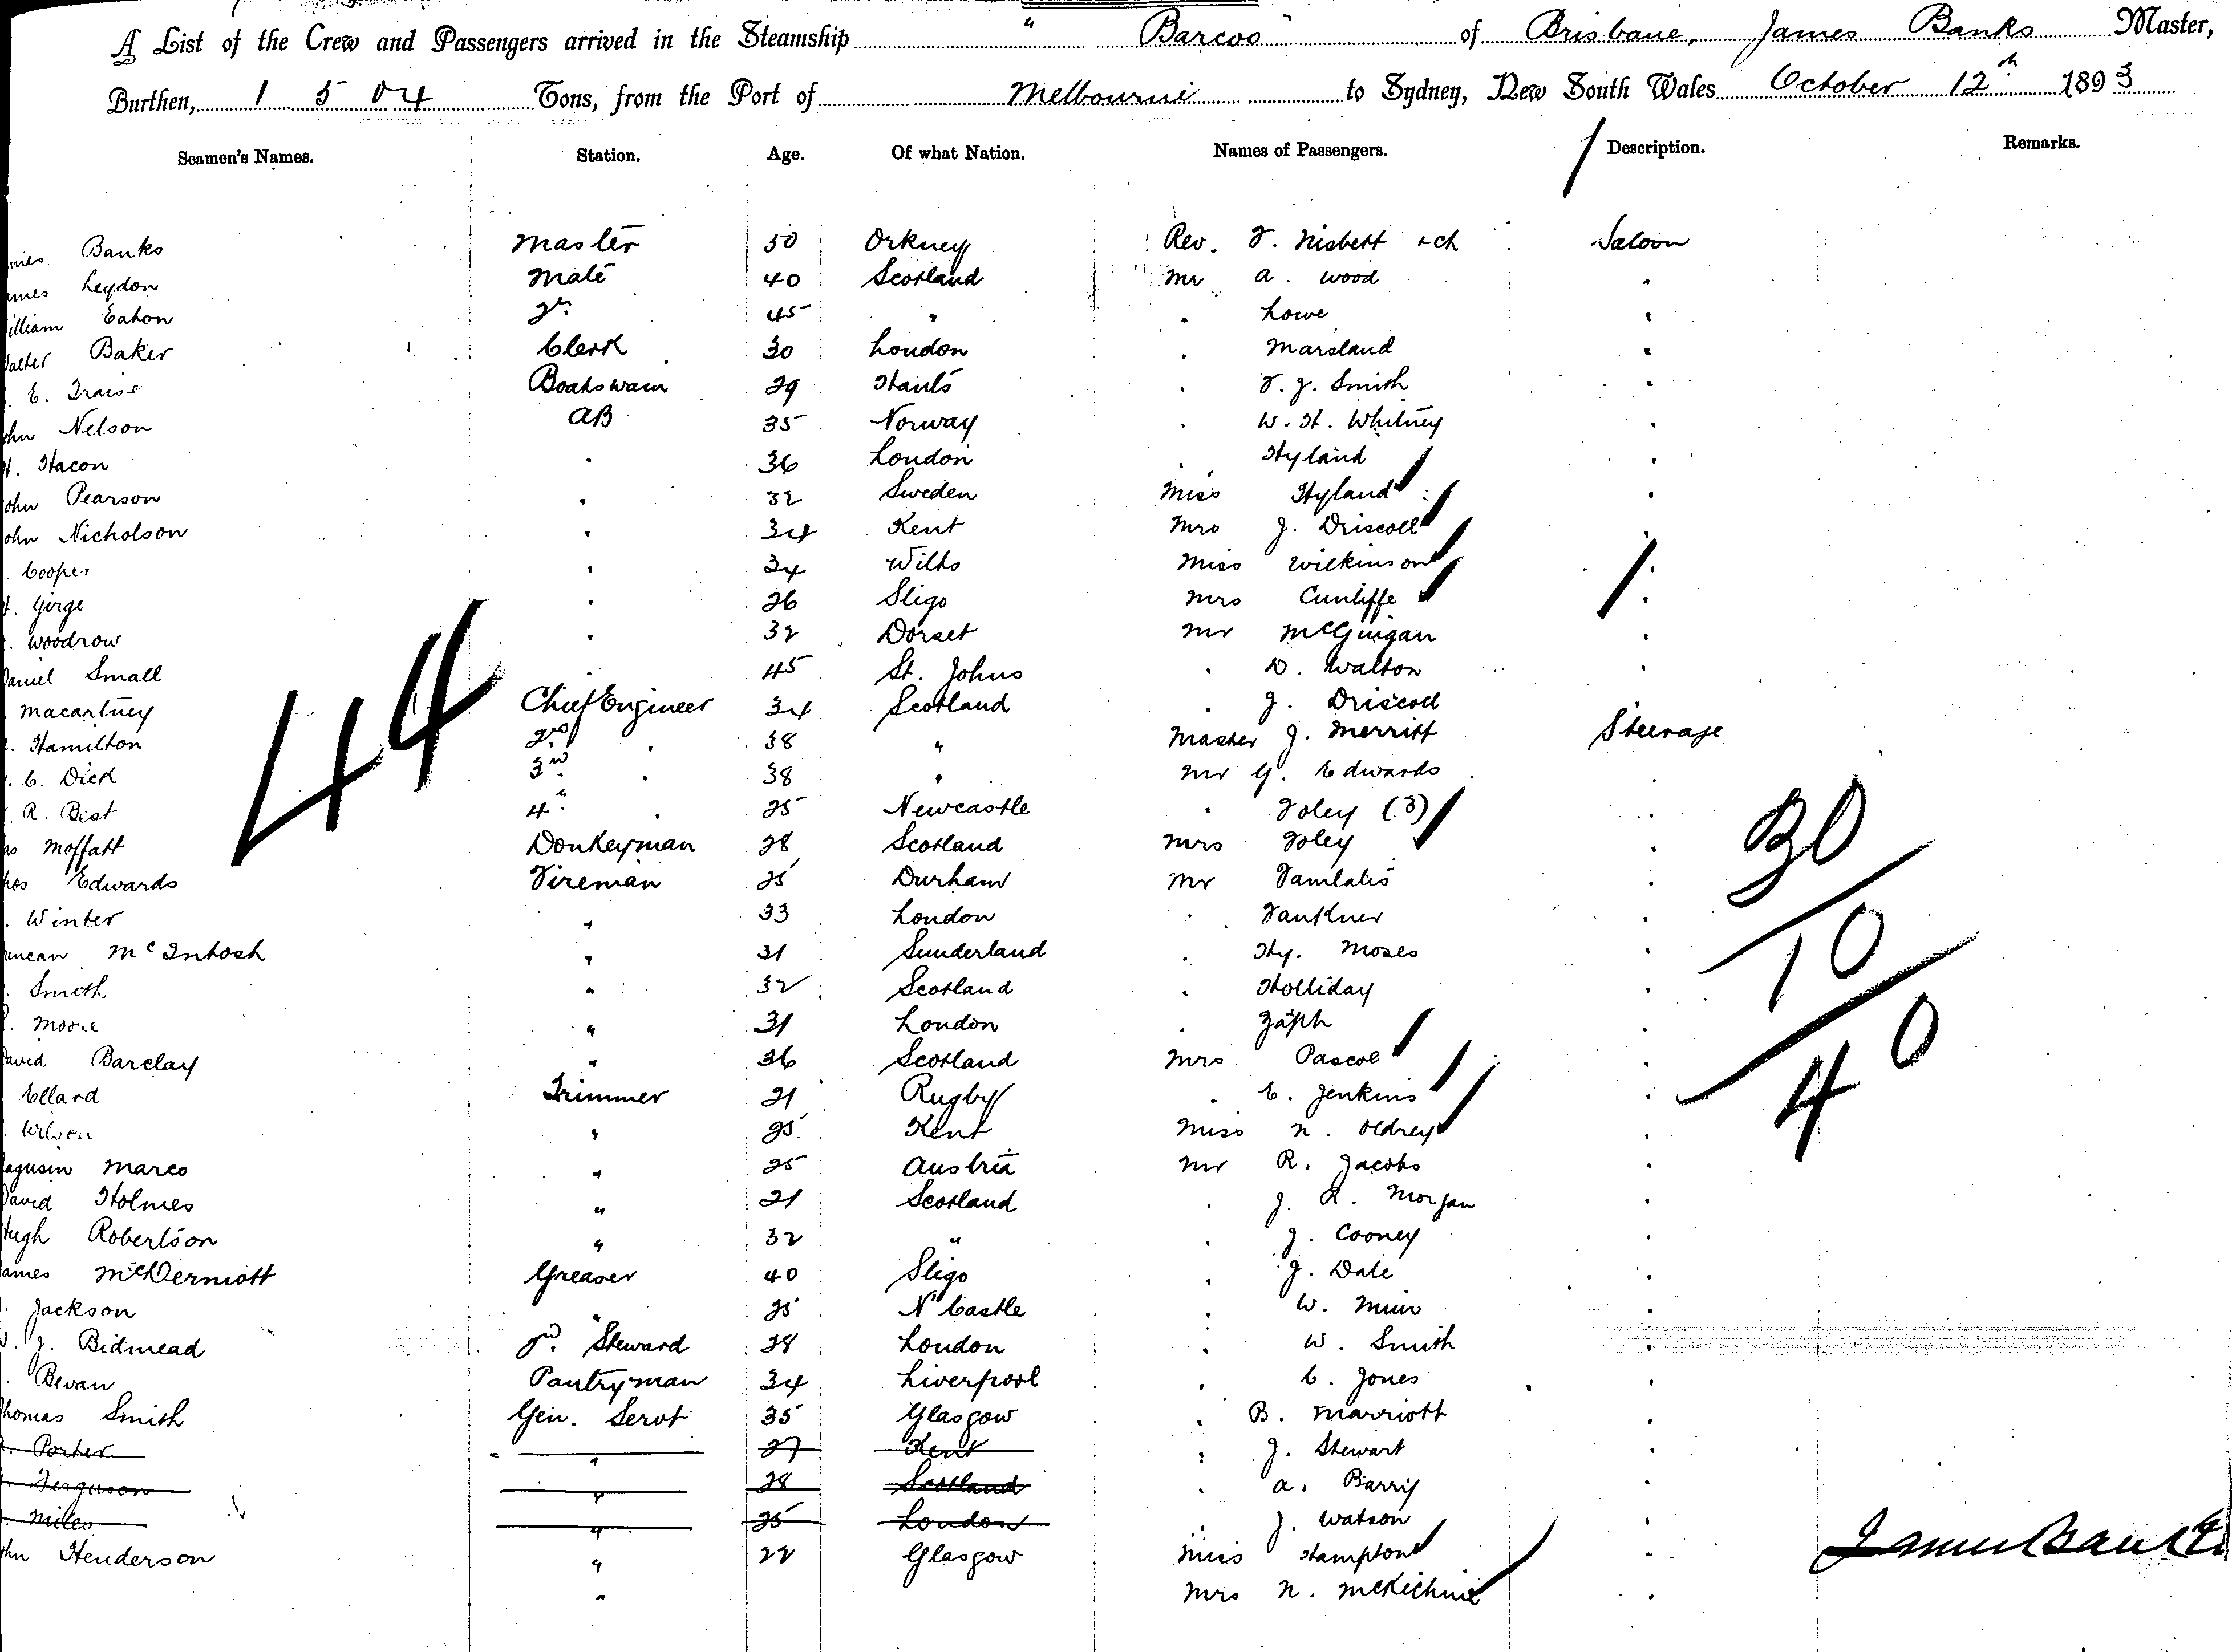 A List of the Crew and Passengers arrived in the Steamship " Barcoo " of Brisbane, James Banks Master,
Burthen, 1504 Tons, from the Port of Melbourne to Sydney, New South Wales October 12th 1893
Seamen's Names. Station. Age. Of what Nation. Names of Passengers. Description. Remarks.
mes Banks Master 50 Orkney Rev. F. Nisbett + ch Saloon
ames Leydon Mate 40 Scotland Mr A. Wood "
illiam Eaton 2nd 45 " " Lowe "
alter Baker Clerk 30 London " Marsland "
E. Traise Boatswain 29 Hants " F. J. Smith "
ohn Nelson AB 35 Norway " W. H. Whitney "
H. Hacon " 36 London " Hyland "
ohn Pearson " 32 Sweden Miss Hyland "
ohn Nicholson " 34 Kent Mrs J. Driscoll "
. Cooper " 34 Wilts Miss Wilkinson "
. Girge " 26 Sligo Mrs Cunliffe "
. Woodrow " 32 Dorset Mr McGuigan "
aniel Small " 45 St. Johns " D. Walton "
Macartney Chief Engineer 34 Scotland " J. Driscoll
. Hamilton 2nd " 38 " Master J. Merritt Steerage
. C. Dick 3rd " 38 " Mr G. Edwards "
. R. Bist 4th " 25 Newcastle " Foley (3) "
s Moffatt Donkeyman 28 Scotland Mrs Foley "
hos Edwards Fireman 25 Durham Mr "
. Winter " 33 London " Faulkner "
uncan McIntosh " 31 Sunderland " Hy. Moses "
. Smith " 32 Scotland " Holliday "
. Moore " 31 London " "
avid Barclay " 36 Scotland Mrs Pascoe "
Ellard Trimmer 21 Rugby " E. Jenkins "
. Wilson " 25 Kent Miss N. Oldrey "
agusin Marco " 25 Austria Mr R. Jacobs "
avid Holmes " 21 Scotland " J. R. Morgan "
Hugh Robertson " 32 " " J. Cooney "
ames McDermott Greaser 40 Sligo " J. Dale "
. Jackson " 25 N'Castle " W. Muir "
. J. Bidmead 2nd Steward 28 London " W. Smith "
. Bevan Pantryman 34 Liverpool " C. Jones "
homas Smith Gen. Servt 35 Glasgow " B. Marriott "
. Porter " 27 Kent " J. Stewart "
. Ferguson " 28 Scotland " A. Barry "
. Miles " 25 London " J. Watson "
ohn Henderson " 22 Glasgow Miss Hampton "
" Mrs N. McKichnie "
44
30
10
40
James Banks